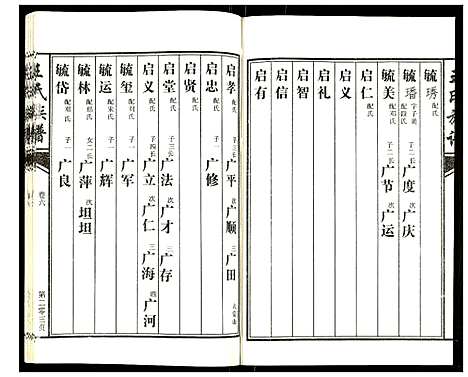 毓琇 配氏
毓璠 字子譜 配段氏 子二 长 广度 次 广庆
毓美 配邓氏 子二 长 广节 次 广运
启仁 配氏
启义
启礼
启智
启信
启有
启孝 配氏 子三 长 广平 次 广顺 三 广田
启忠 配氏 子一 广修
启贤 配氏
启堂 配氏 子三 长 广法 次 广才 三 广存
启义 配氏 子四 长 广立 次 广仁 三 广海 四 广河
毓玺 配刘氏 子一 广军
毓运 配宋氏 子一 广辉
毓林 配郑氏 女二 长 广萍 次 坦坦
毓岱 配邓氏 子一 广良
王氏宗谱
卷六
第二零三页